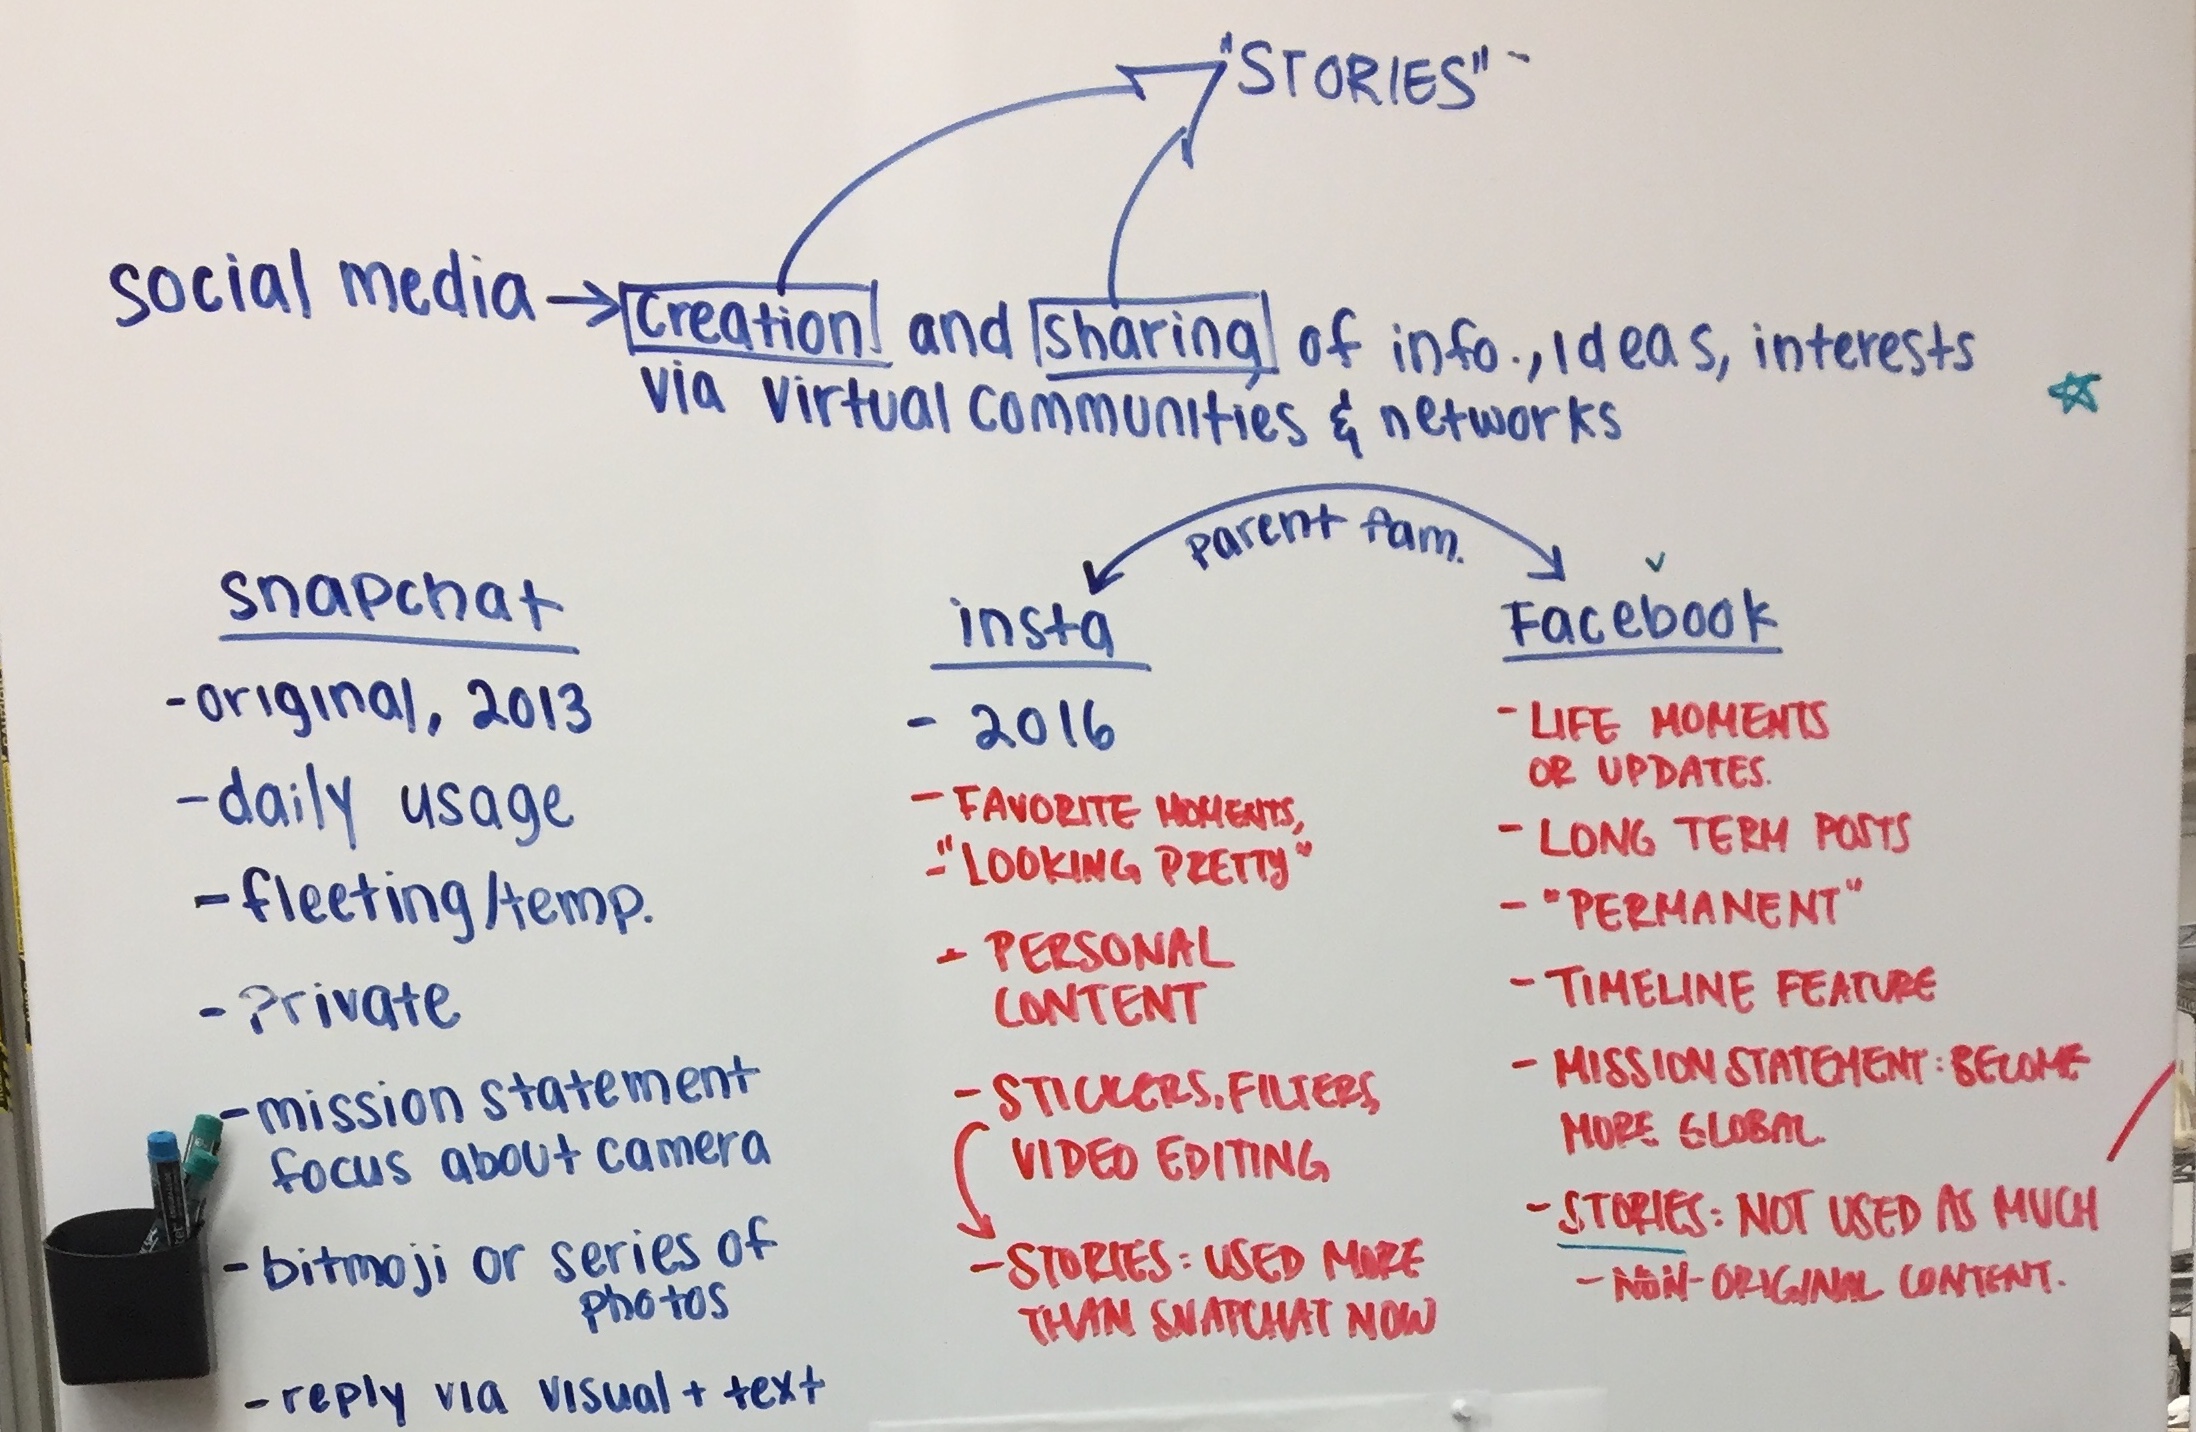 "STORIES" -
social media → creation and sharing of info., ideas, interests
via virtual communities & networks
parent fam.
snapchat
- original, 2013
- daily usage
- fleeting/temp.
- Private
- mission statement
focus about camera
- bitmoji or series of
photos
- reply via visual + text
insta
- 2016
- FAVORITE MOMENTS,
- "LOOKING PRETTY"
- PERSONAL
CONTENT
- STICKERS, FILTERS,
VIDEO EDITING
- STORIES: USED MORE
THAN SNAPCHAT NOW
Facebook
- LIFE MOMENTS
OR UPDATES.
- LONG TERM POSTS
- "PERMANENT"
- TIMELINE FEATURE
- MISSION STATEMENT: BECOME
MORE GLOBAL
- STORIES: NOT USED AS MUCH
- NON-ORIGINAL CONTENT.